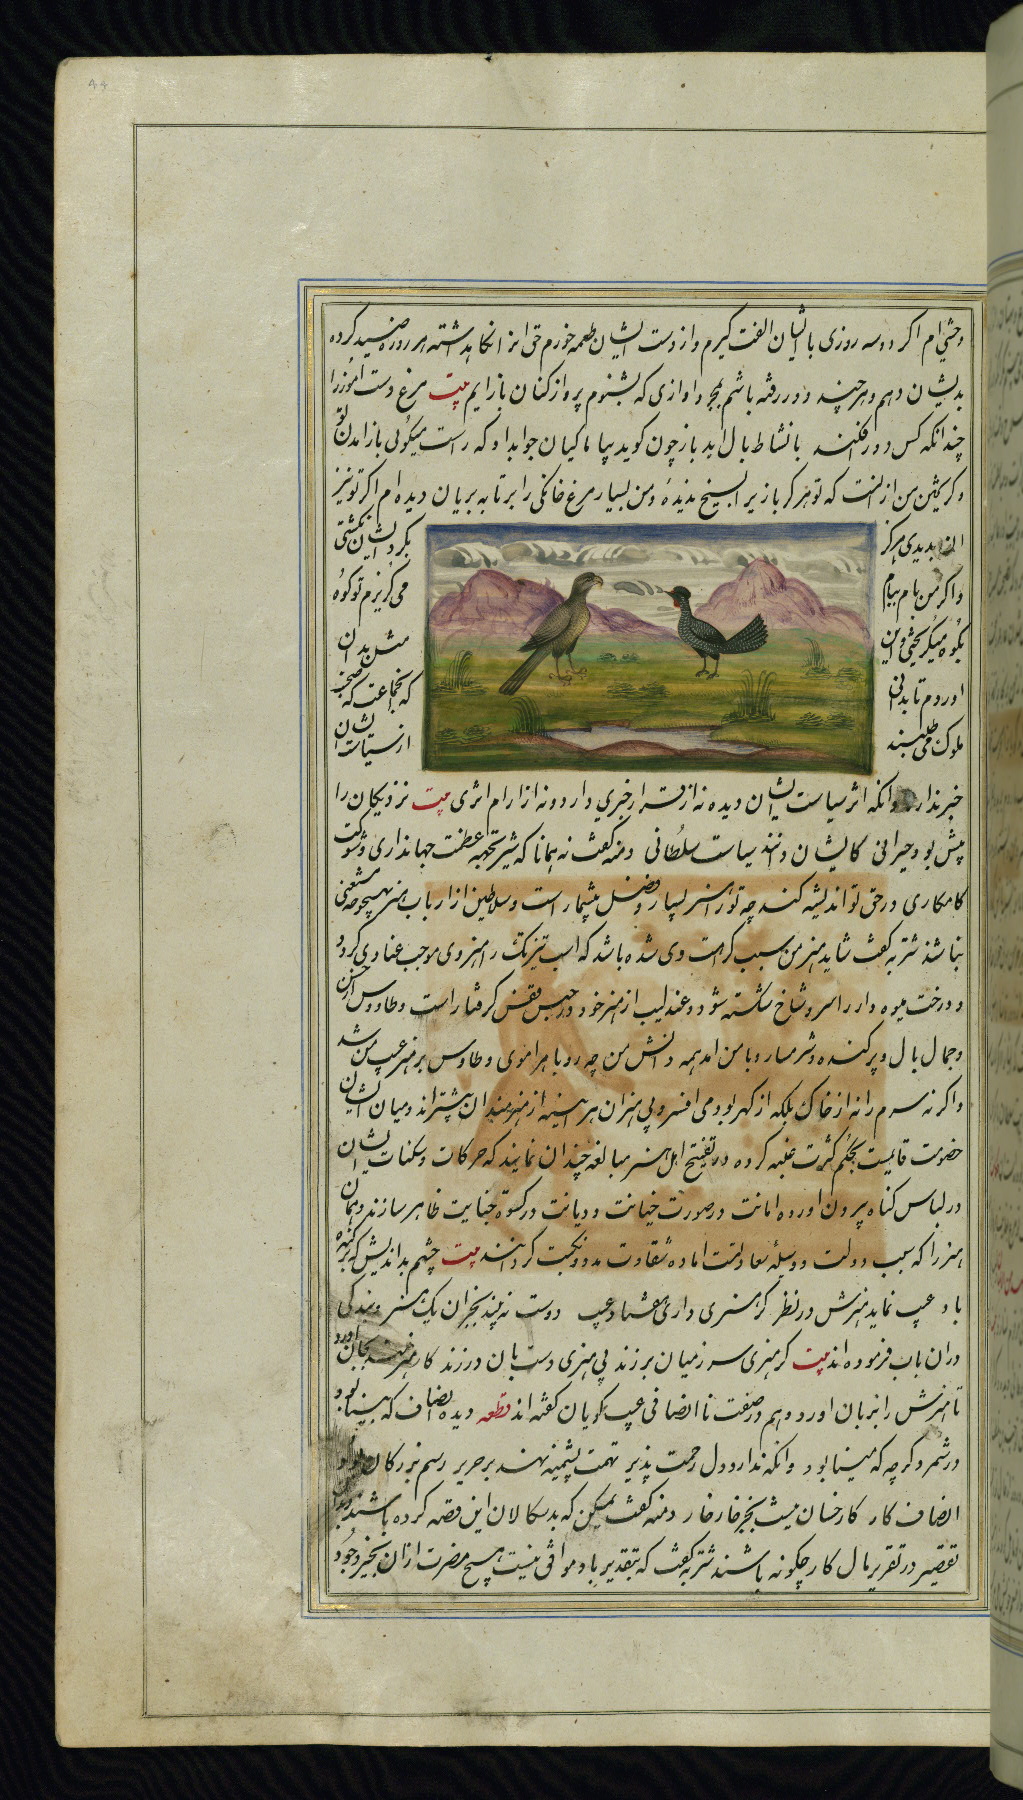 وحشی ام اگر دوسه روزی با ایشان الفت گیرم و از دست ایشان طعمه خورم حق انرا نگاهداشته هر روزه صید کرده
بدیشان دهم و هرچند دور رفته باشم بمجرد اوازی که بشنوم پرواز کنان باز ایم بیت مرغ دست اموز را
چندانکه کس دور افکند با نشاط بال اید باز چون گوید بیا ماکیان جواب داد که راست میگوئی باز امدن تو
و گریختن من از انست که تو هرگز باز بر سیخ ندیدهٔ و من بسیار مرغ خانگی را بر تابه بریان دیده ام اگر تو نیز
ان بدیدی هرگز
بگرد ایشان نگشتی
و اگر من بام ببام
می گریزم تو کوه
بکوه میگریختی و این
مثل بدان
اوردم تا بدانی
که انجماعت که صحبت
ملوک می طلبند
از سیاست ایشان
خبر ندارند و انکه اثر سیاست ایشان دیده نه از قرار خبری دارد و نه از ارام اثری بیت نزدیکان را
بیش بود حیرانی کایشان دانند سیاست سلطانی دمنه گفت نه همانا که شیر بجهه عظمت جهانداری و شوکت
کامکاری در حق تو اندیشه کند چه تو را هنر بسیار و فضل بیشمار است و سلاطین از ارباب هنر بهیچوجه مستغنی
نباشند شتربه گفت شاید هنر من سبب کراهت وی شده باشد که اسب تیزتک را هنر وی موجب عنا وی گردد
و درخت میوه دار را سر و شاخ شکسته شود و عندلیب از هنر خود در حبس قفس گرفتار است و طاوس از حسن
و جمال بال و پر کنده و شرمسار وبا من امد همه دانش من چه روباه را موی و طاوس را پر هنر عیب من شد
و اگر نه سرم را نه از خاک بلکه از گهر بودمی افسر و بی هنران هر اینه از هنرمندان بیشتر اند و میان ایشان
خصومت قائمست بحکم کثرت غلبه کرده در تقبیح اهل هنر مبالغه چندان نمایند که حرکات و سکنات ایشان
در لباس گناه بیرون اورده امانت در صورت خیانت و دیانت در کسوة جنایت ظاهر سازند و همان
هنر را که سبب دولت و وسیلهٔ سعادتست اماده شقاوت و مدد نکبت گردانند بیت چشم بداندیش که برکنده
باد عیب نماید هنرش در نظر گر هنری داری و هفتاد عیب دوست نه بیند بجز ان یک هنر و بزرگی
دران باب فرموده اند بیت گر هنری سر ز میان بر زند بی هنری دست بان در زند کار هنرمند بجان اورد
تا هنرش را بزبان اورد و هم در صفت نا انصافی عیب گویان گفته اند قطعه دیده انصاف که بینا بود
در شمرد گرچه که مینا بود و انکه ندارد دل رحمت پذیر تهمت پشمینه نهد بر حریر رسم بزرگان بود
انصاف کار کار خسان نیست بجز خار خار دمنه گفت یمکن که بدسگالان این قصه کرده باشند و
تقصیر در تقریر مال کار چگونه باشند شتربه گفت که بتقدیر باد موافق نیست هیچ مضرت از ان بخیر وجود